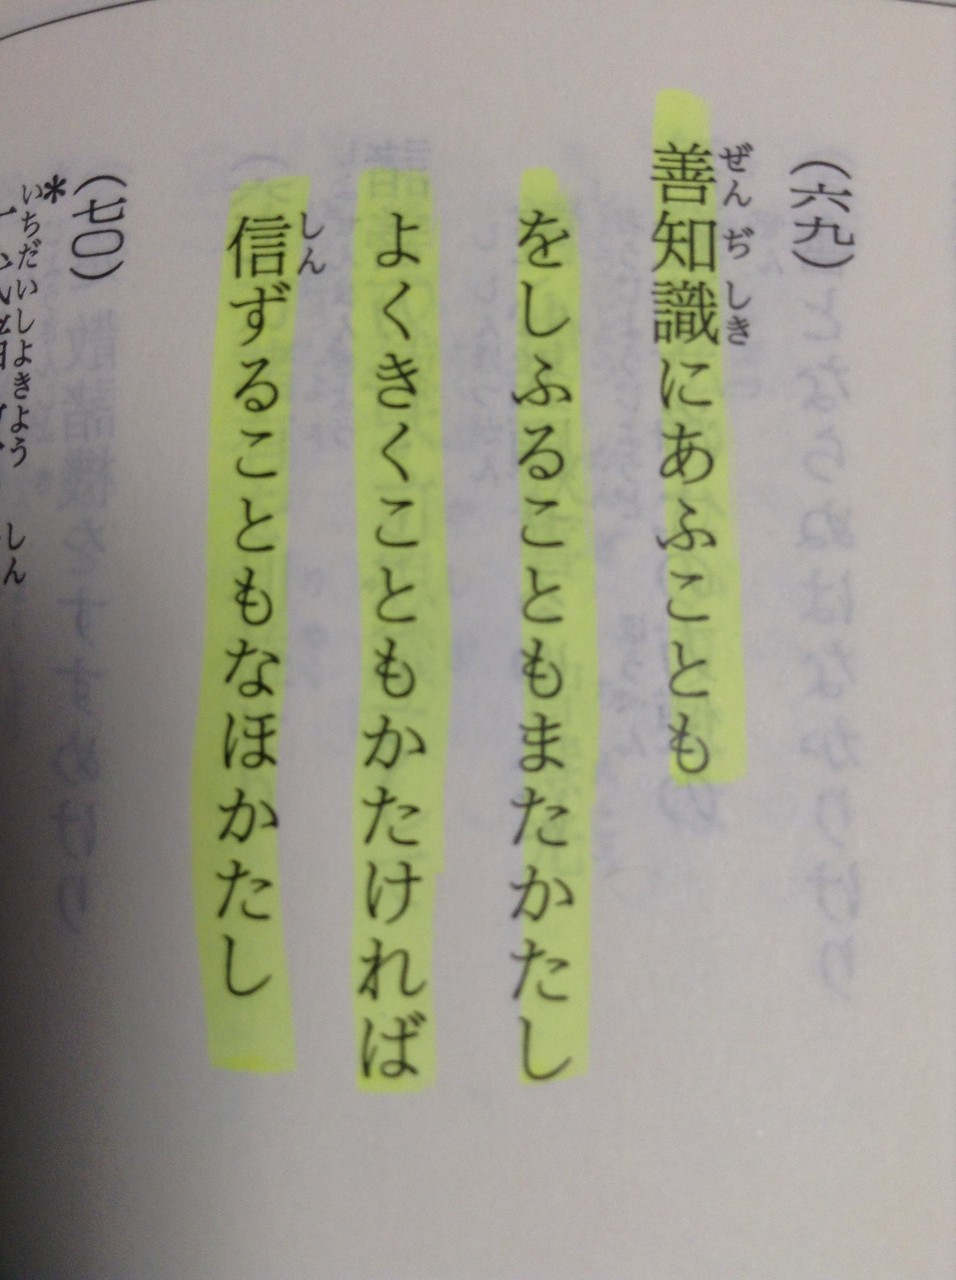 (六九)
善知識にあふことも
ぜんぢしき
をしふることもまたかたし
よくきくこともかたければ
信ずることもなほかたし
しん
(七〇)
*
いちだいしよきよう
しん